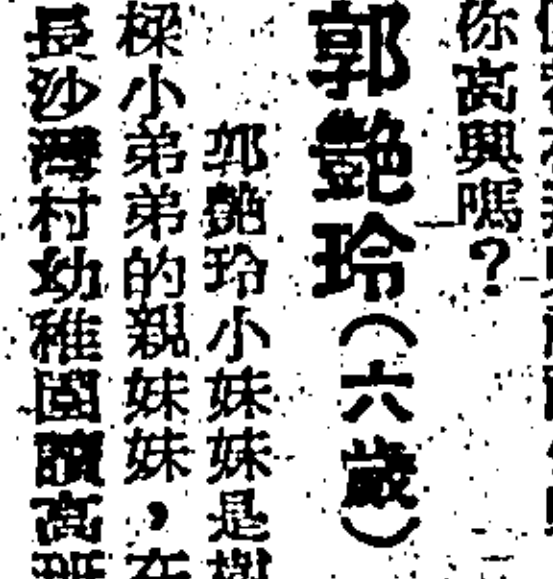 你高興嗎？
郭艷玲（六歲）
郭艷玲小妹妹是樹
樑小弟弟的親妹妹，在
長沙灣村幼稚園讀高班